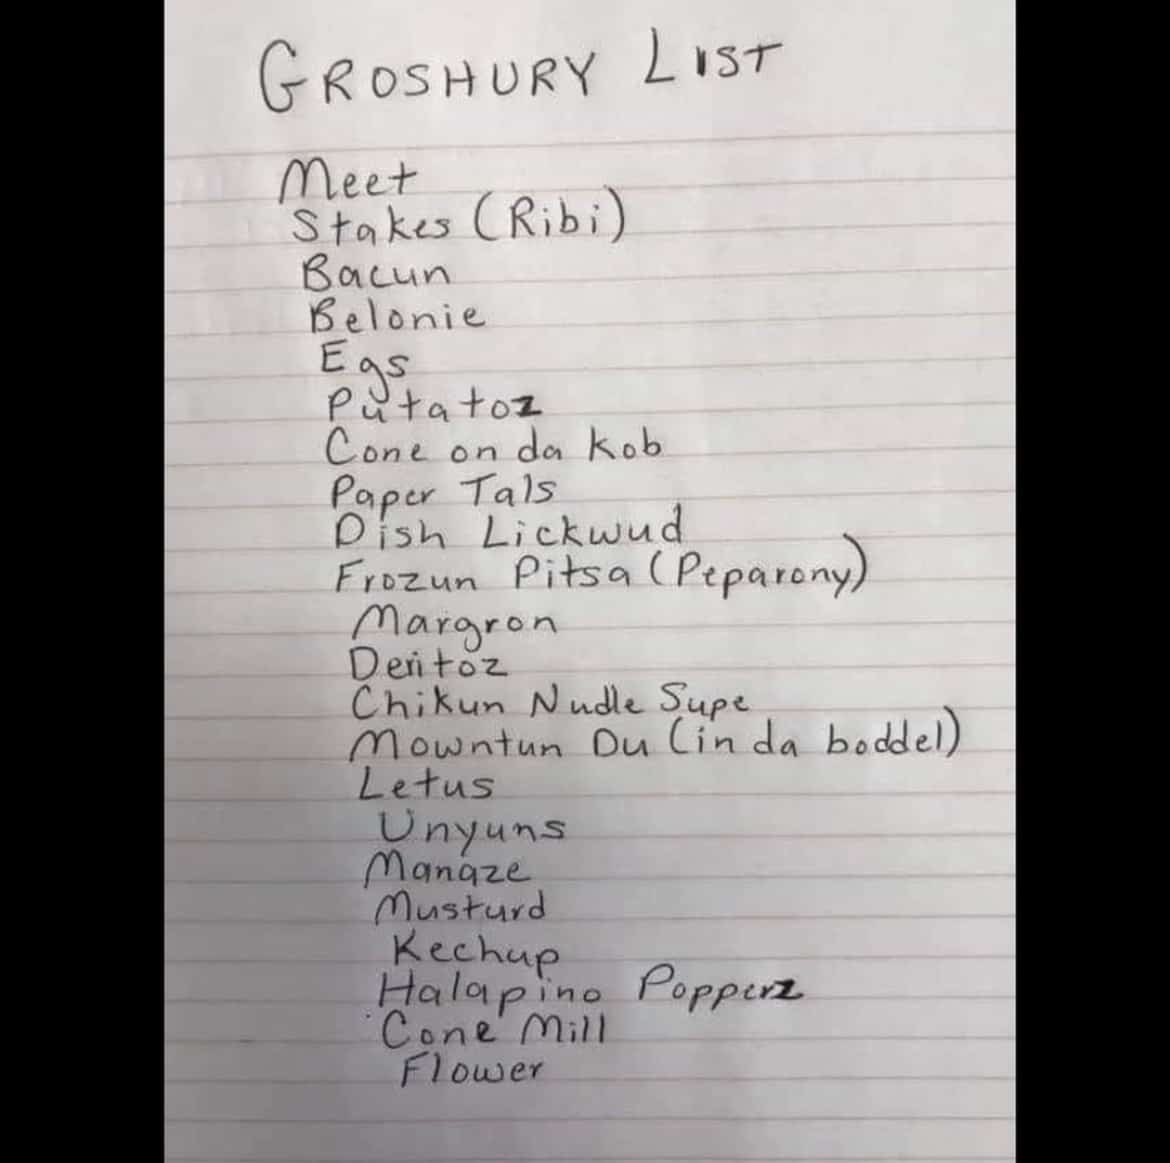 GROSHURY LIST
Meet
Stakes (Ribi)
Bacun
Belonie
Egs
Putatoz
Cone on da Kob
Paper Tals
Dish Lickwud
Frozun Pitsa (Peparony)
Margron
Deritoz
Chikun Nudle Supe
Mowntun Du (in da boddel)
Letus
Unyuns
Manaze
Musturd
Kechup
Halapino Popperz
Cone Mill
Flower